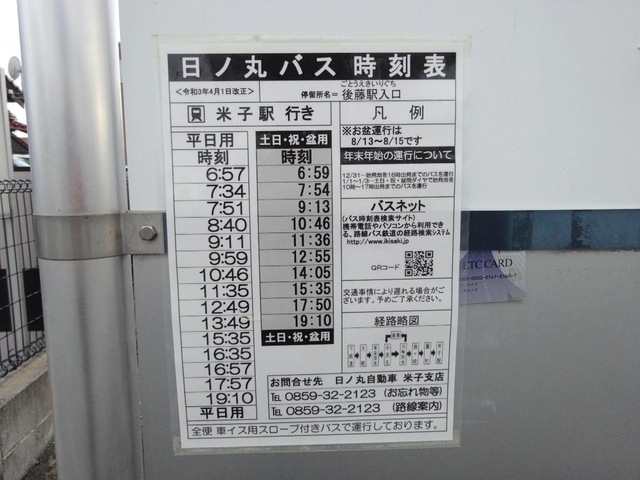 日ノ丸バス時刻表
<令和3年4月1日改正>
ごとうえきいりぐち
停留所名=後藤駅入口
米子駅 行き
平日用
時刻
6:57
7:34
7:51
8:40
9:11
9:59
10:46
11:35
12:49
13:49
15:35
16:35
16:57
17:57
19:10
平日用
土日・祝・盆用
時刻
6:59
7:54
9:13
10:46
11:36
12:55
14:05
15:35
17:50
19:10
土日・祝・盆用
凡 例
※お盆運行は
8/13〜8/15です
年末年始の運行について
12/31…始発地を18時出発までのバスを運行
1/1〜1/3…土日・祝・盆用ダイヤで始発地を
10時〜17時出発までのバスを運行
バスネット
(バス時刻表検索サイト)
携帯電話やパソコンから利用でき
る、路線バス鉄道の経路検索システム
http://www.ikisaki.jp
QRコード
交通事情により遅れる場合がご
ざいます。予めご了承ください。
経路略図
お問合せ先 日ノ丸自動車 米子支店
TEL 0859-32-2123 (お忘れ物等)
TEL 0859-32-2123 (路線案内)
全便 車イス用スロープ付きバスで運行しております。
ETC CARD